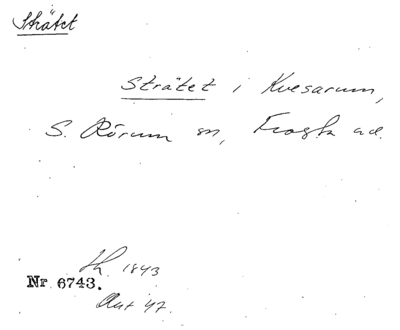 Strätet
Strätet i Kvesarum,
S. Rörum sn, Frosta hd.
1843
Nr 6743.
47.